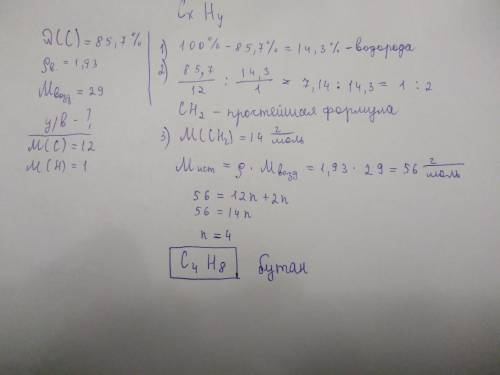 Cx Hy
Ω(C) = 85,7%
ρв. = 1,93
Mвозд = 29
у/в - ?
M(C) = 12
M(H) = 1
1) 100% - 85,7% = 14,3% - водорода
2) 85,7/12 : 14,3/1 = 7,14 : 14,3 = 1 : 2
CH2 - простейшая формула
3) M(CH2) = 14 г/моль
Mист = ρ · Mвозд = 1,93 · 29 = 56 г/моль
56 = 12n + 2n
56 = 14n
n = 4
C4 H8 бутан